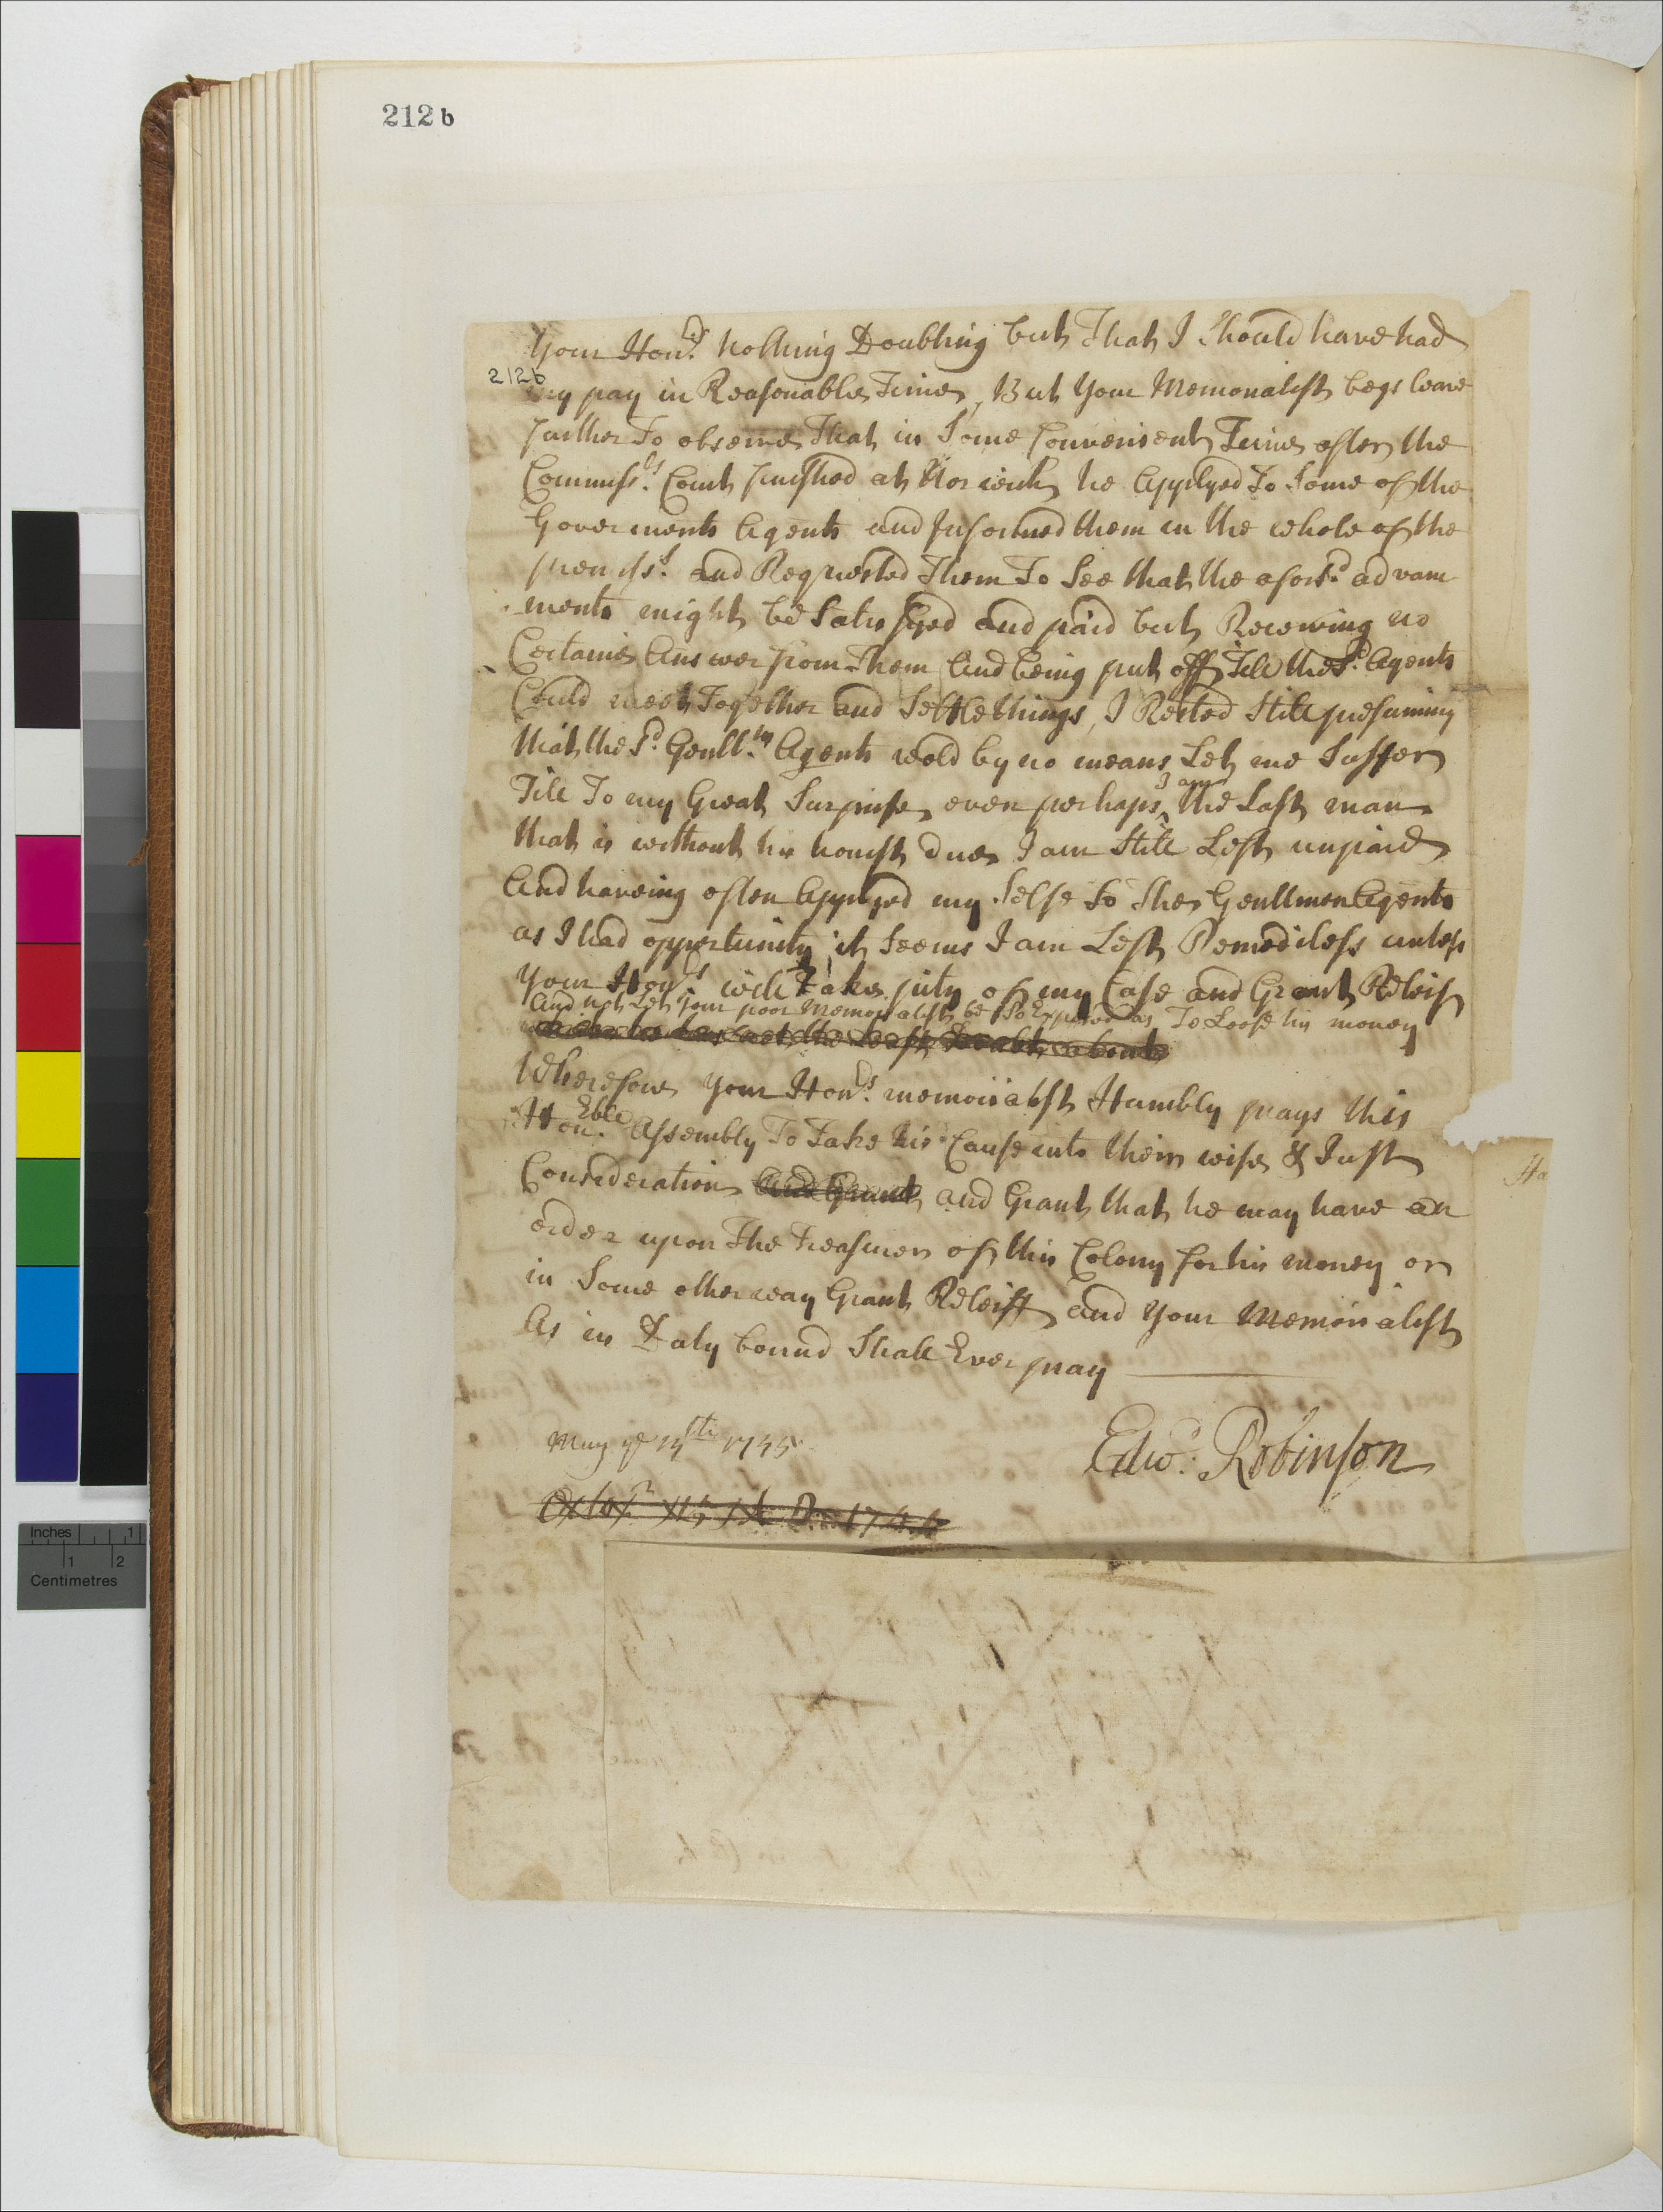 212 b
Your Honrs. nothing Doubting but That I Should have had
212b
my pay in Reasonable Time, But Your Memorialist begs leave
further To observe That in Some Convenient Time after the
Commissrs. Court finished at Norwich he Applyed To Some of the
Goverments Agents and Informed them in the whole of the
premiss. and Requested Them To See that the aforsd. advan
ments might be Satisfyed and paid but Receiving no
Certaine Answer from Them And being put off Till the Sd. Agents
Could meet Together and Settle things, I Rested Still presuming
that the Sd. Gentlm. Agents wold by no means Let me Suffer
I am
Till To my Great Surprise, even perhaps ^ the Last man
that is without his honest due I am Still Left unpaid
And haveing often Applyed my Selfe to The Gentlmen Agents
as I had opportunity it Seems I am Left Remediless unless
Your Honrs will Take pity of my Case and Grant Releif
And not Let your poor Memorialist be So Exposed as To Loose his money
Wherefore Your Honrs. memorialist Humbly prays this
HonEble. Assembly To Take his Cause into their wise & Just
Consideration And Grant and Grant that he may have an
order upon The Treasurer of this Colony for his money or
in Some other way Grant Releiff and Your Memorialist
As in Duty bound Shall Ever pray
May ye 1745
Edwd. Robinson
Ha
Inches 1
1 2
Centimetres